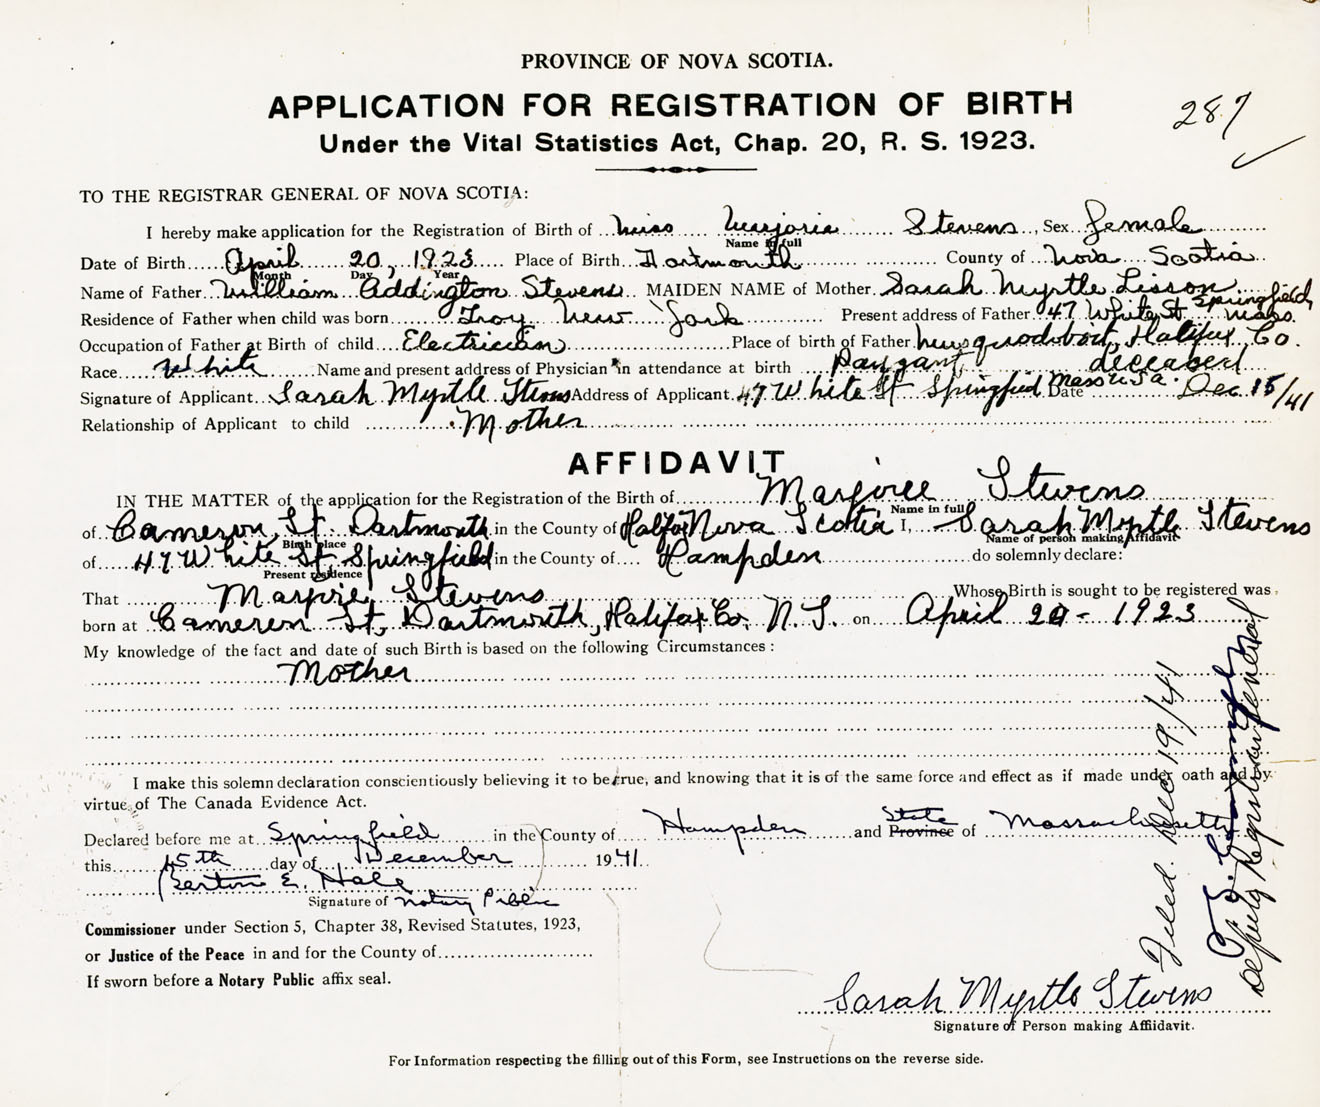 PROVINCE OF NOVA SCOTIA.
APPLICATION FOR REGISTRATION OF BIRTH
287
Under the Vital Statistics Act, Chap. 20, R. S. 1923.
TO THE REGISTRAR GENERAL OF NOVA SCOTIA:
I hereby make application for the Registration of Birth of Miss Marjorie Stevens, Sex Female
Name in full
Date of Birth April 20, 1923 Place of Birth Dartmouth County of Nova Scotia
Month Day Year
Name of Father William Addington Stevens MAIDEN NAME of Mother Sarah Myrtle Lisson
Residence of Father when child was born Troy New York Present address of Father 47 White St Springfield, Mass.
Occupation of Father at Birth of child Electrician Place of birth of Father Musquodoboit, Halifax Co.
Race White Name and present address of Physician in attendance at birth deceased
Signature of Applicant Sarah Myrtle Stevens Address of Applicant 47 White St Springfield Mass U.S.A. Date Dec 15/41
Relationship of Applicant to child Mother
AFFIDAVIT
IN THE MATTER of the application for the Registration of the Birth of Marjorie Stevens
Name in full
of Cameron St. Dartmouth in the County of Halifax Nova Scotia I, Sarah Myrtle Stevens
Birth place Name of person making Affidavit
of 47 White St Springfield in the County of Hampden do solemnly declare:
Present residence
That Marjorie Stevens Whose Birth is sought to be registered was
born at Cameron St, Dartmouth, Halifax Co. N.S. on April 20 - 1923
My knowledge of the fact and date of such Birth is based on the following Circumstances:
Mother
I make this solemn declaration conscientiously believing it to be true, and knowing that it is of the same force and effect as if made under oath and by
virtue of The Canada Evidence Act.
Declared before me at Springfield in the County of Hampden and Province State of Massachusetts
this 15th day of December 1941
Berton E. Hale
Signature of Notary Public
Commissioner under Section 5, Chapter 38, Revised Statutes, 1923,
or Justice of the Peace in and for the County of
If sworn before a Notary Public affix seal.
Sarah Myrtle Stevens
Signature of Person making Affidavit.
Filed. Dec 19/41
Deputy Registrar General
For Information respecting the filling out of this Form, see Instructions on the reverse side.